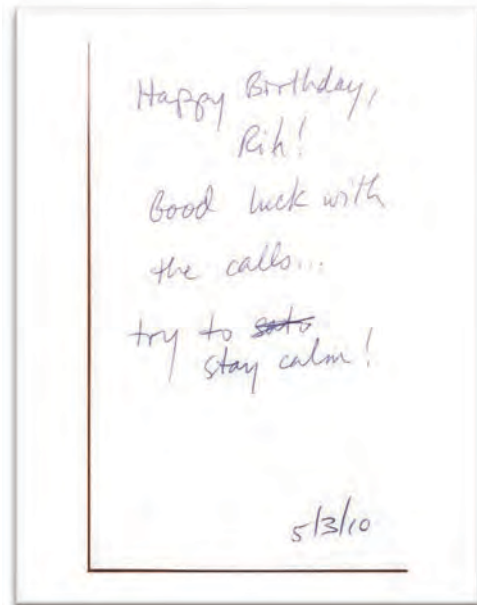 Happy Birthday,
Rih!
Good luck with
the calls...
try to
stay calm!
5/3/10